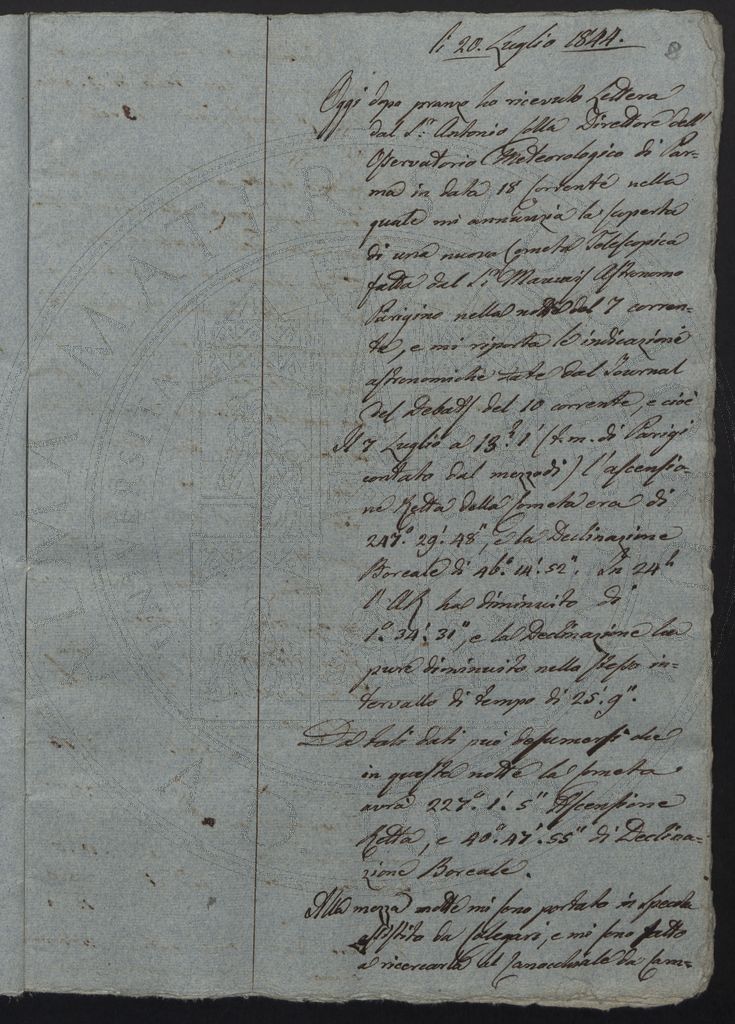 li 20. Luglio 1844.
8
Oggi dopo pranzo ho ricevuto Lettera
dal S.r Antonio Colla Direttore dell'
Osservatorio Meteorologico di Par=
ma in data 18 corrente nella
quale mi annunzia la scoperta
di una nuova Cometa Telescopica
fatta dal S.r Mauvais Astronomo
Parigino nella notte del 7 corren=
te, e mi riporta le indicazioni
astronomiche date dal Journal
des Debats del 10 corrente, e cioè
Il 7 Luglio a 13.h 1' (t. m. di Parigi
contato dal mezzodì) l'ascensio=
ne Retta della Cometa era di
247.° 29.' 48", e la Declinazione
Boreale di 46.° 14.' 52". In 24.h
l'AR ha diminuito di
1.° 34.' 31", e la Declinazione ha
pure diminuito nello stesso in=
tervallo di tempo di 25.' 9".
Da tali dati può desumersi che
in questa notte la Cometa
avrà 227.° 1.' 5" Ascensione
Retta, e 40.° 47.' 55" di Declina=
zione Boreale.
Alla mezza notte mi sono portato in specola
assistito da Calegari, e mi sono fatto
a ricercarla al Canocchiale da Cam=